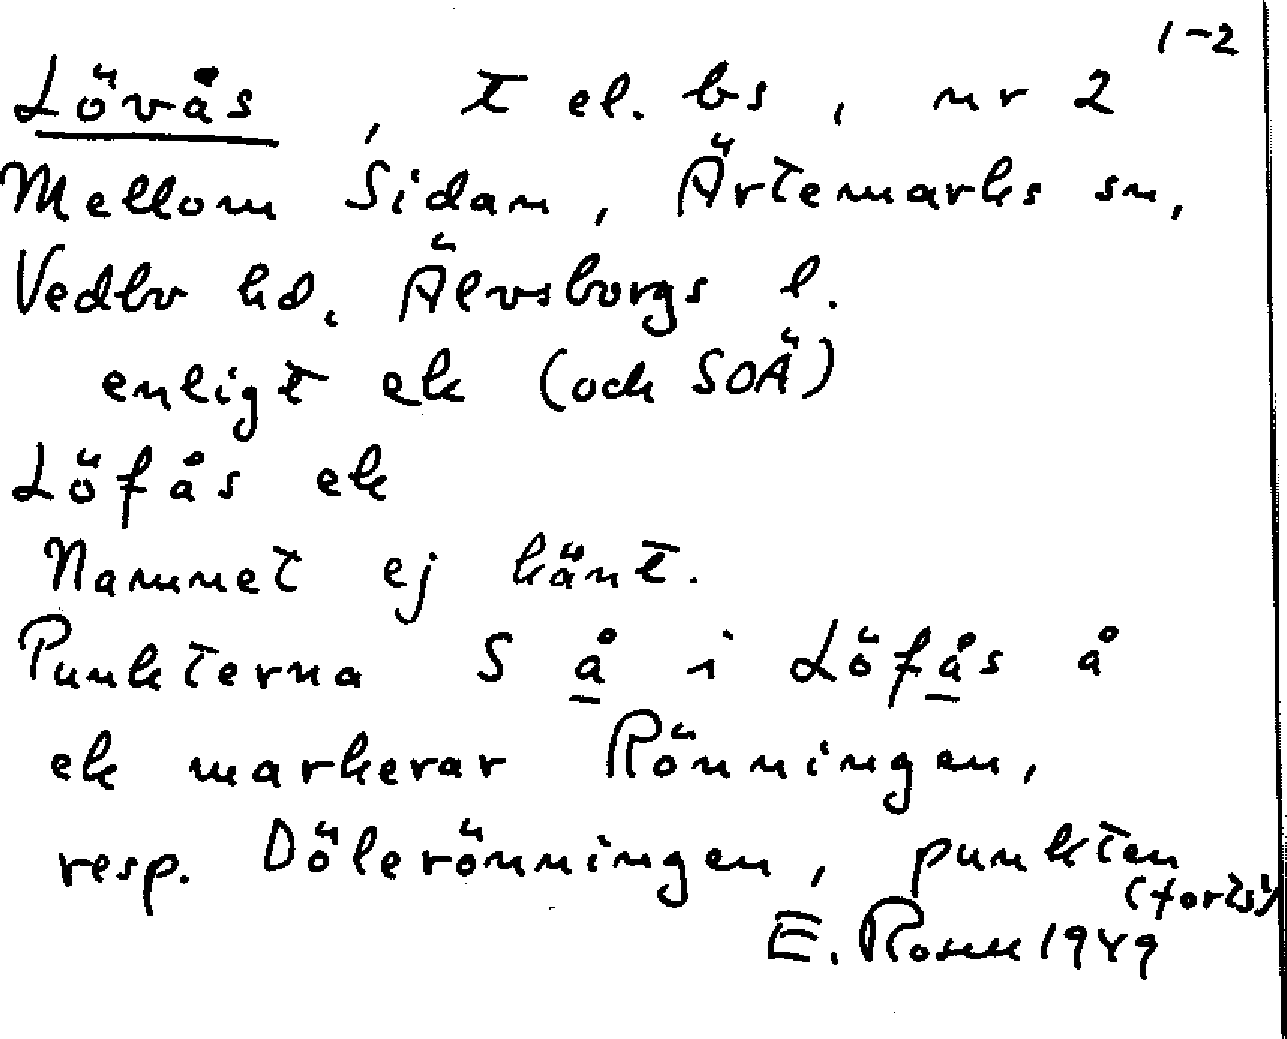 1-2
Lövås, t el. bs, nr 2
Mellom Sidan, Ärtemarks sn,
Vedbo hd, Älvsborgs l.
enligt ek (och SOÄ)
Löfås ek
Namnet ej känt.
Punkterna S å i Löfås å
ek markerar Rönningen,
resp. Dölerönningen, punkten
(forts)
E. Rosell 1949